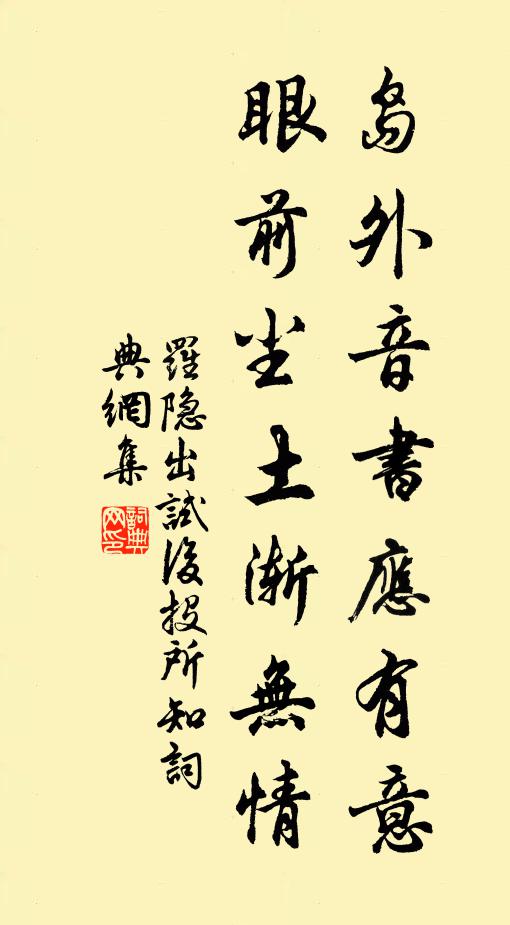 島外音書應有意
眼前塵土漸無情
羅隐出試後投所知詞
典網集
詞典網印